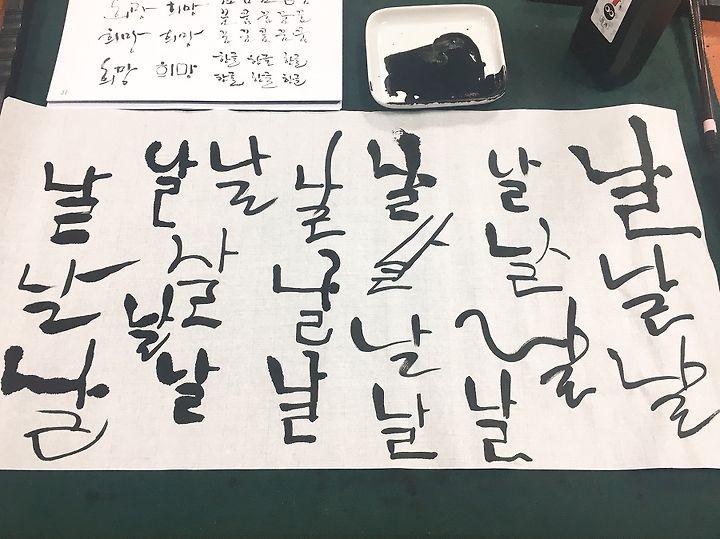 희망 희망
희망 희망
희망 희망 한글 한글 한글
한글 한글 한글
31
날 날 날 날 날 날 날
날 날 날 날 날
날 날 날 날 날 날
날 날 날